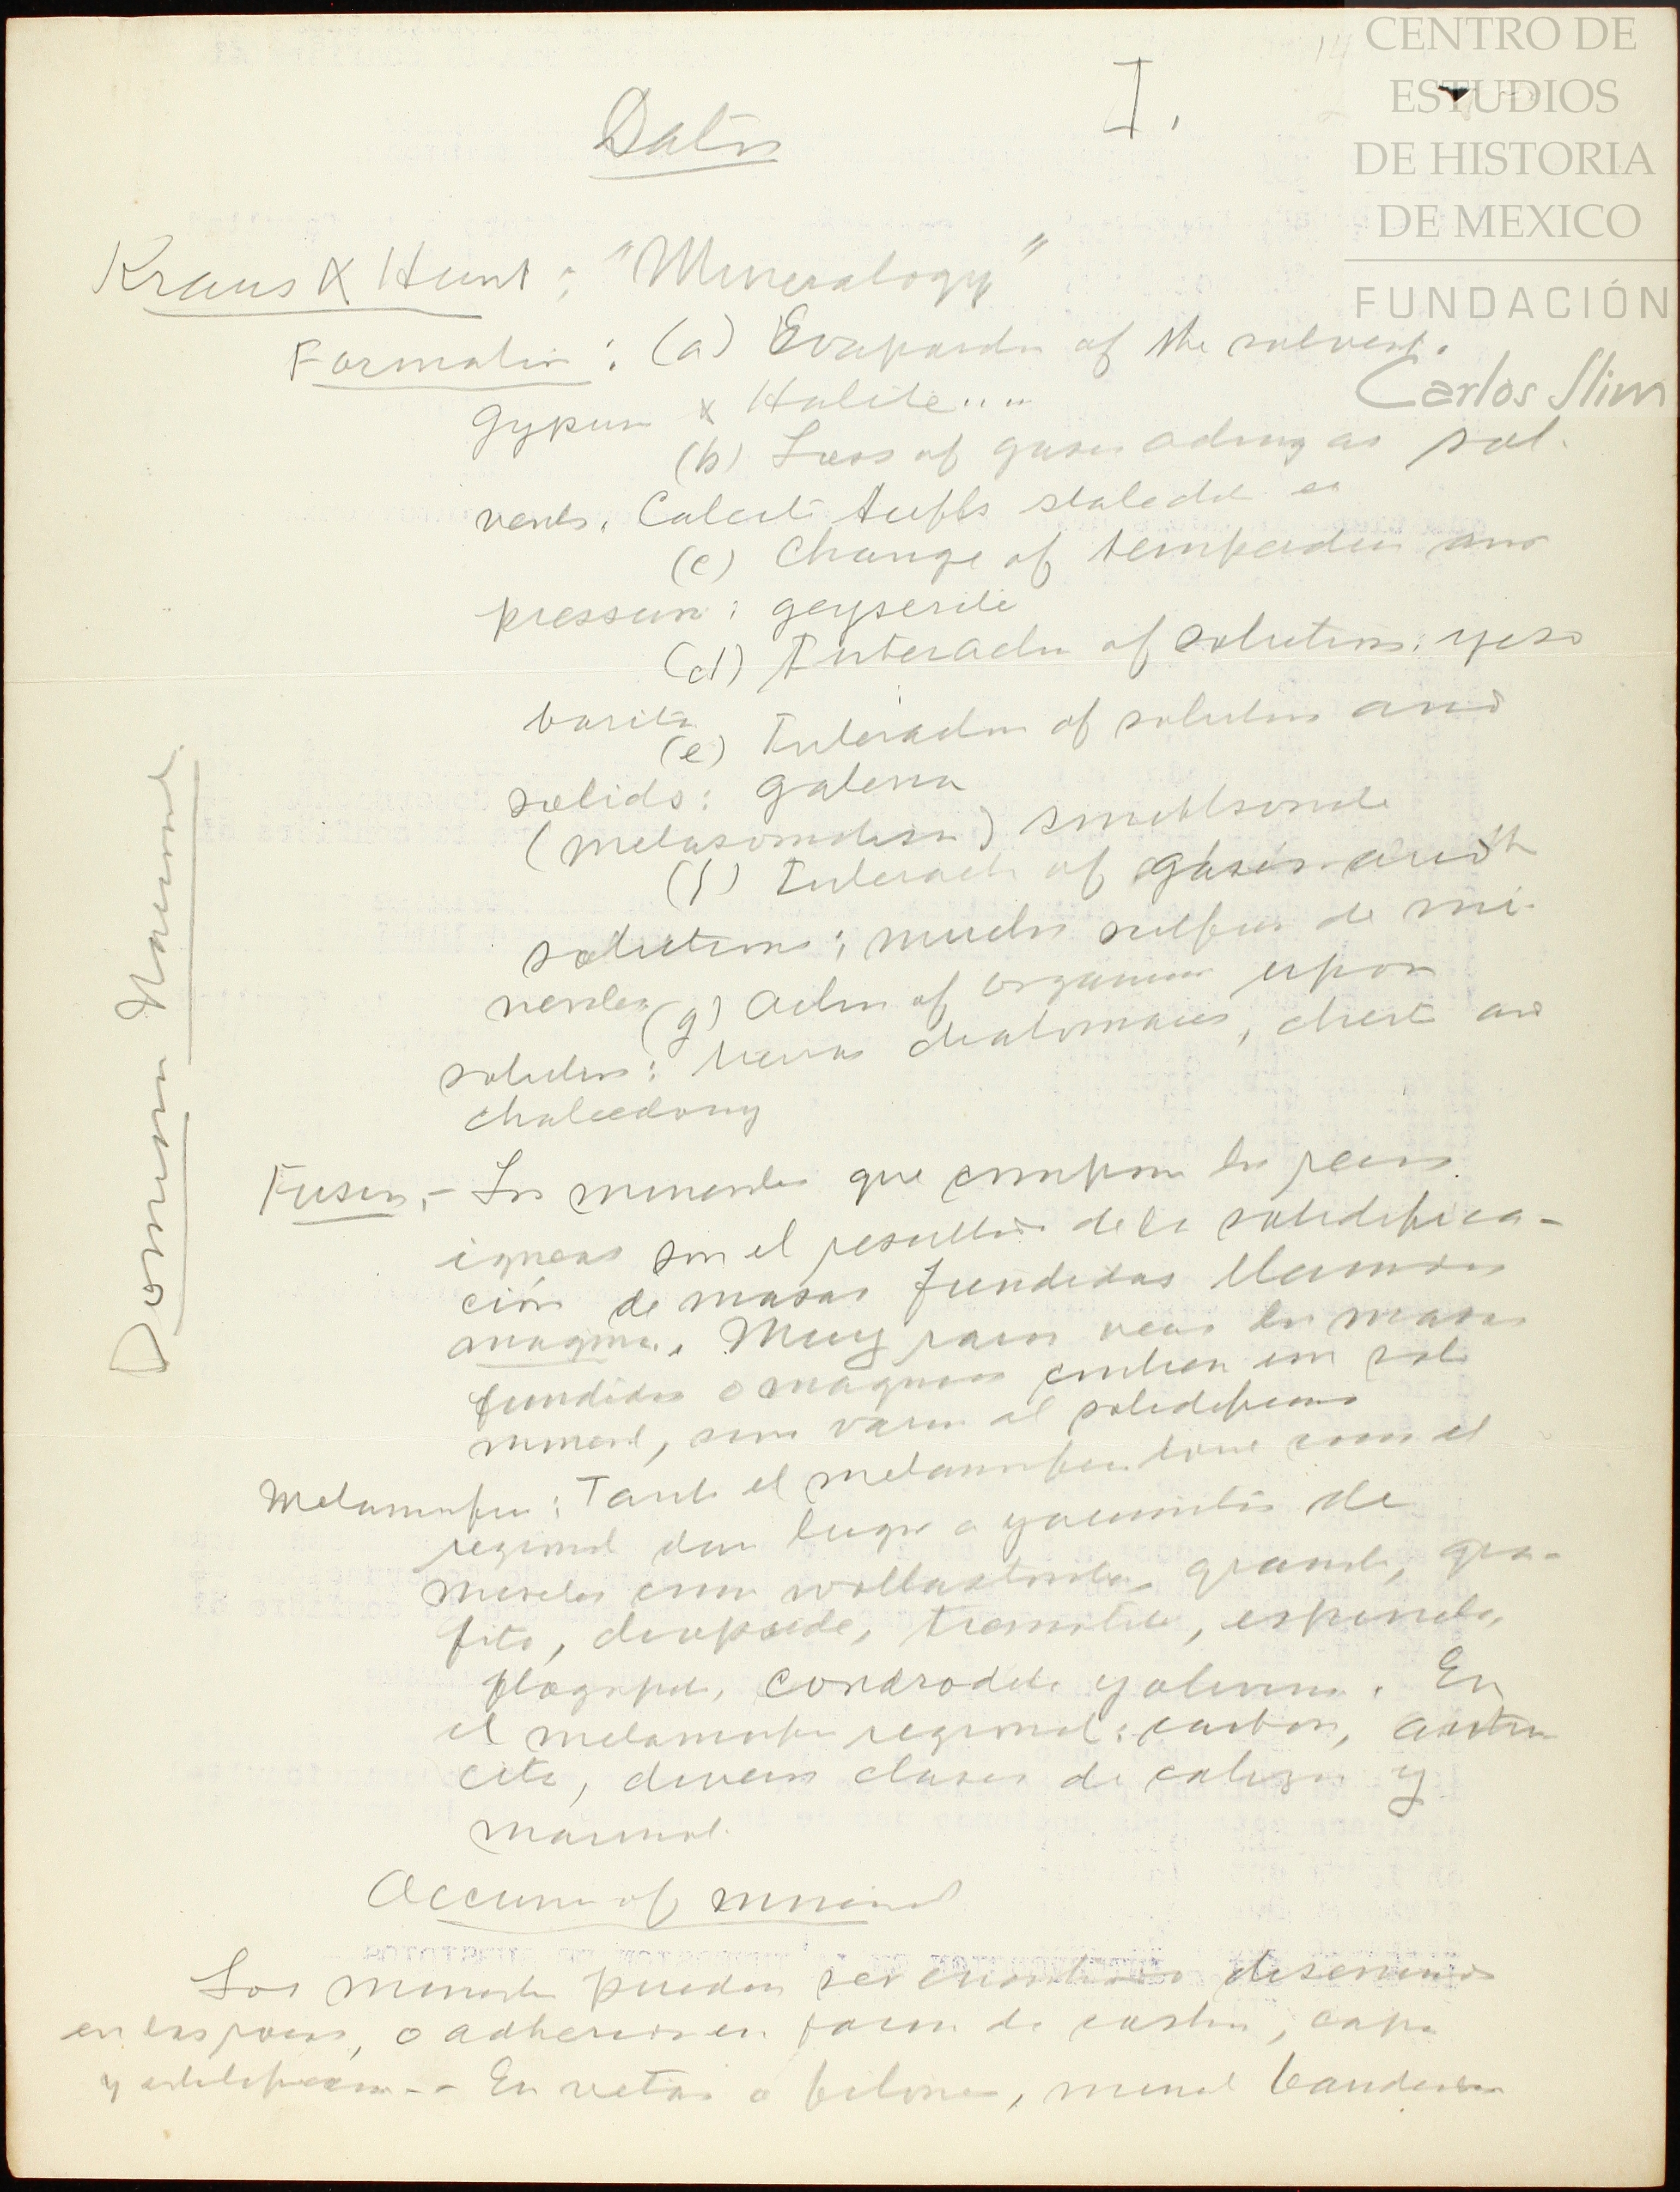 CENTRO DE
ESTUDIOS
DE HISTORIA
DE MEXICO
FUNDACIÓN
Carlos Slim
I.
Datos
Kraus & Hunt: "Mineralogy"
Formation: (a) Evaporation of the solvent.
gypsum & Halite....
(b) Loss of gases acting as sol-
vents. Calcite tuffs
(c) Change of temperature and
pressure: geyserite
(d) Interaction of solutions: yeso
barita
(e) Interaction of solutions and
solids: galena
(metasomatism) smithsonite
(f) Interaction of gases with
solutions: muchos sulfuros de mi-
nerales
(g) Action of organisms upon
solutions: tierras diatomaceas, chert and
chalcedony
Fusion.- Los minerales que componen las rocas
igneas son el resultado de la solidifica-
ción de masas fundidas llamadas
magma. Muy raras veces las masas
fundidas o magmas contienen un solo
mineral, sino varios al solidificarse
Metamorfismo: Tanto el metamorfismo como el
regional dan lugar a yacimientos de
minerales como wollastonita, granate, gra-
fito, diopside, tremolita, espinela,
flogopita, condrodita y olivino. En
el metamorfismo regional: carbon, antra
cita, diversas clases de calizas y
marmol.
Occurrence of minerals
Los minerales pueden ser encontrados diseminados
en las rocas, o adheridos en forma de costras, capas
y En vetas o filones, mineral bandeado
Domingo